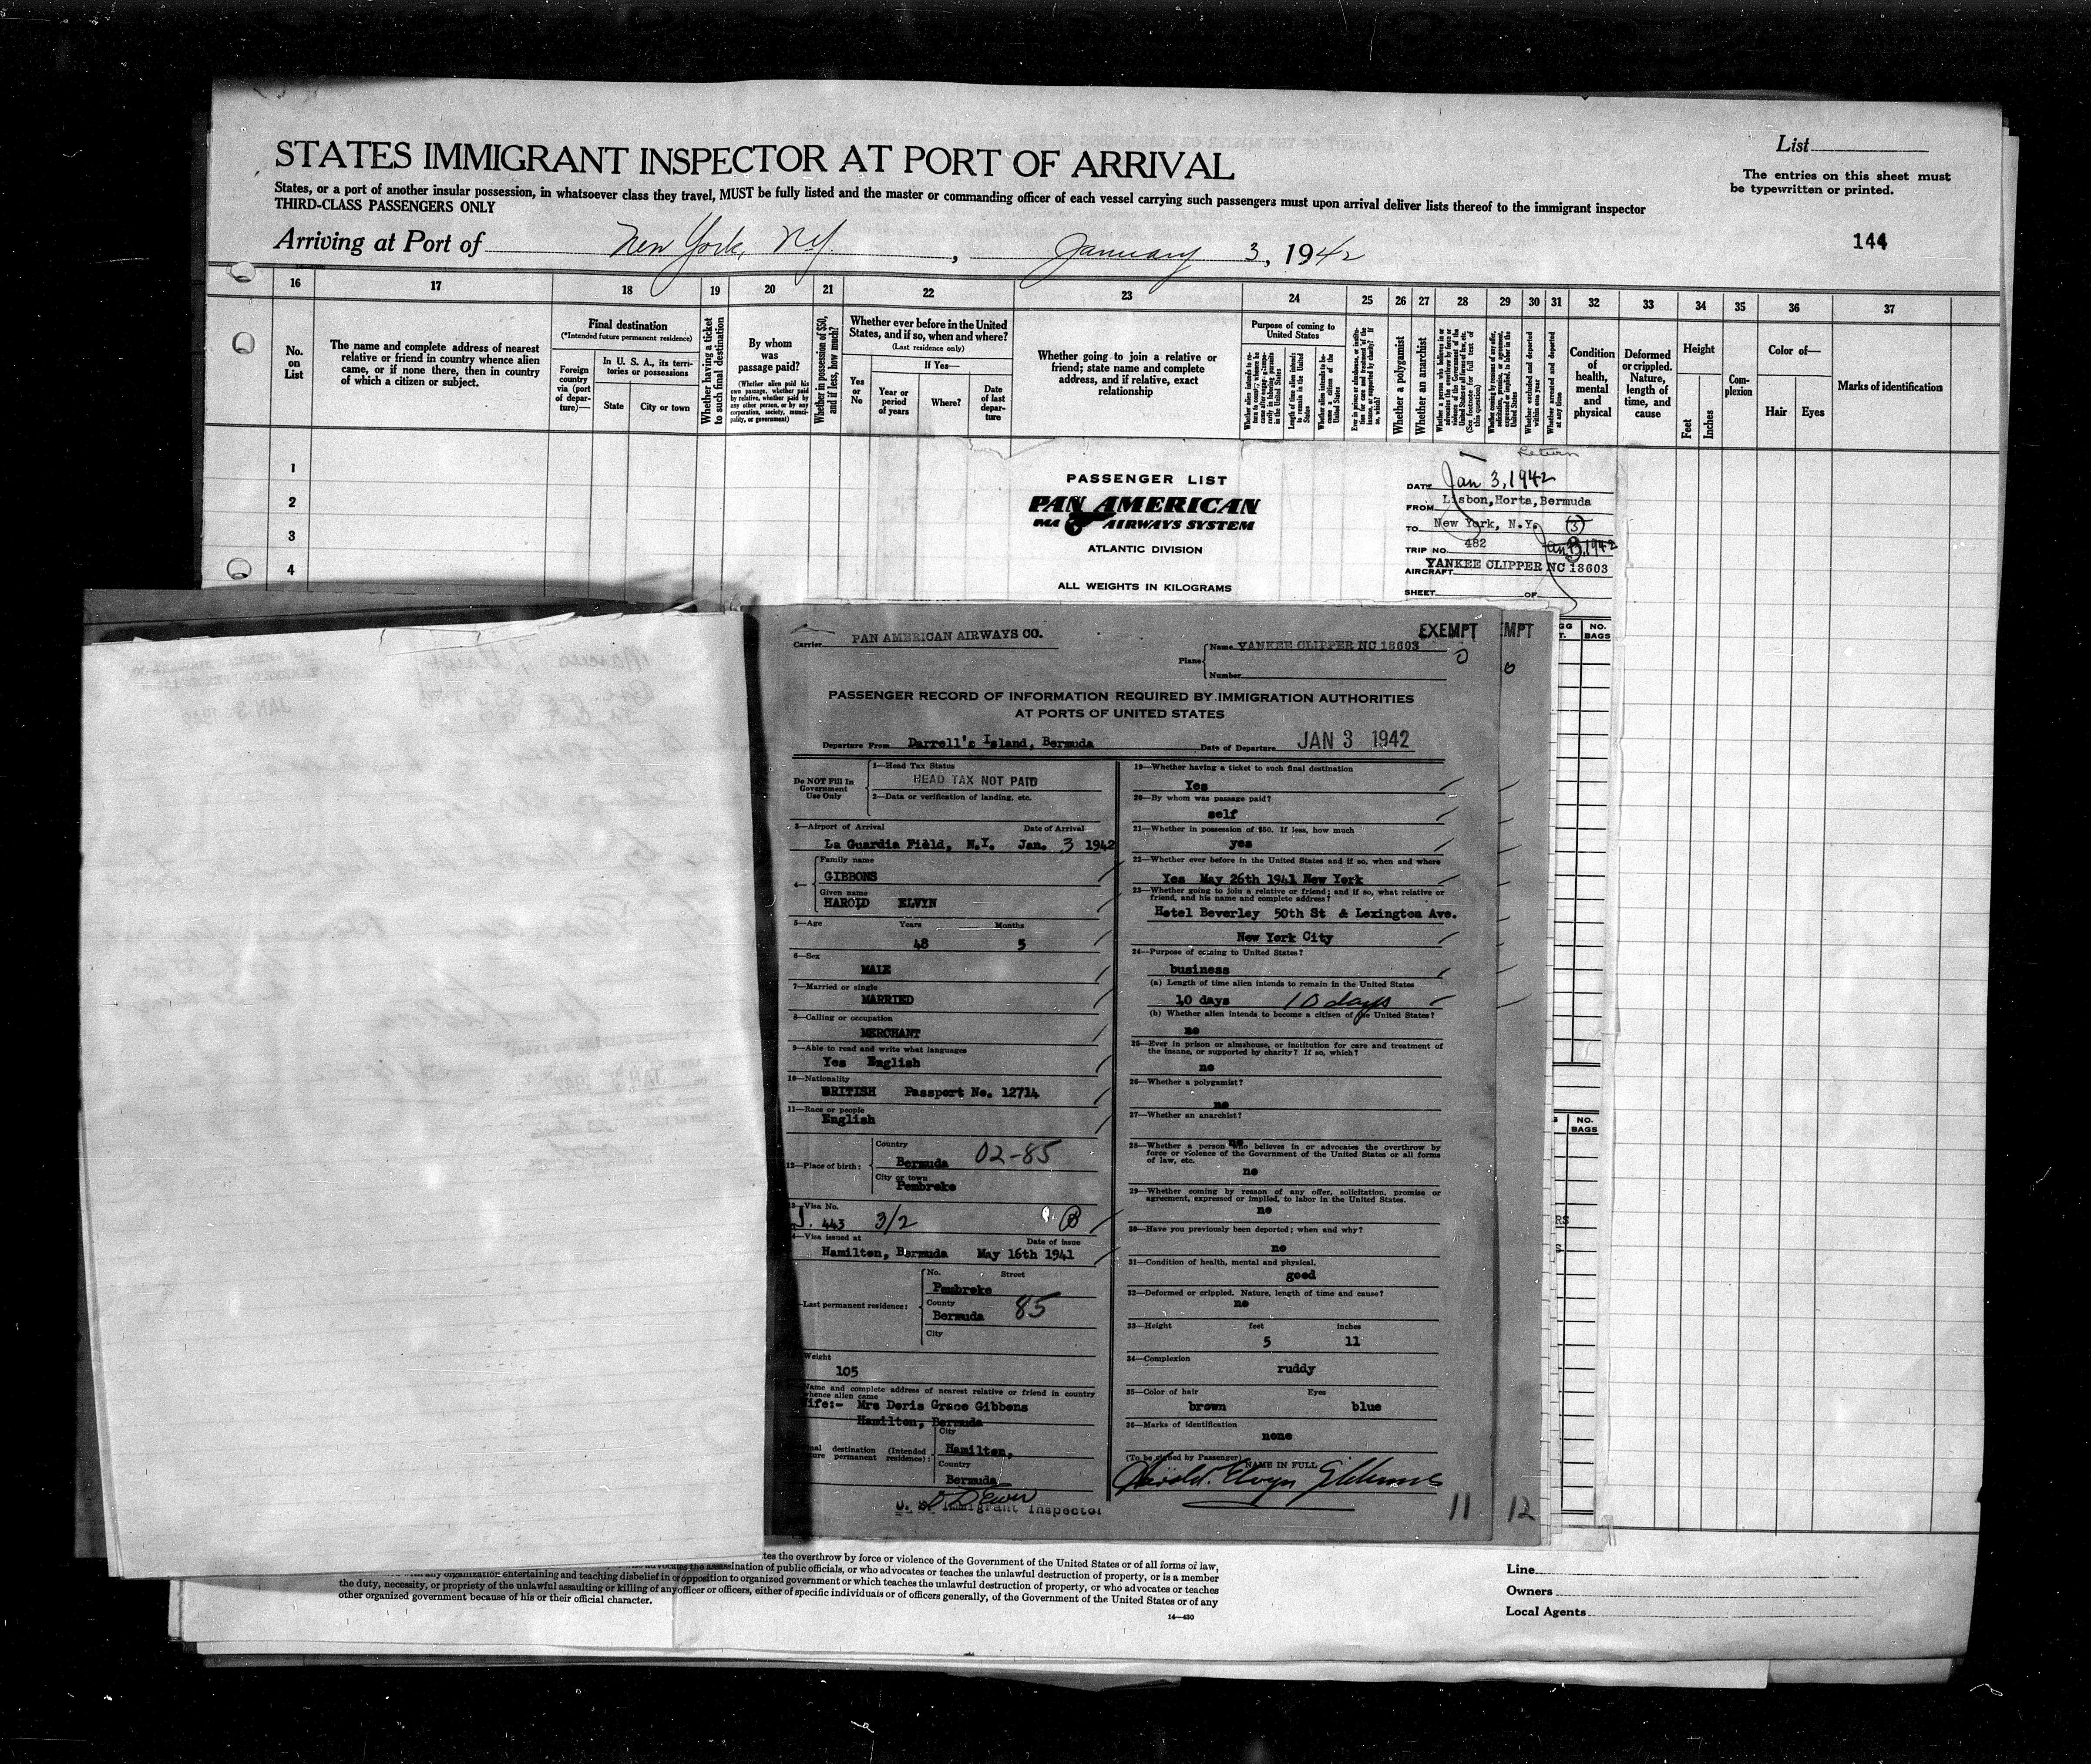 STATES IMMIGRANT INSPECTOR AT PORT OF ARRIVAL
List
The entries on this sheet must
be typewritten or printed.
States, or a port of another insular possession, in whatsoever class they travel, MUST be fully listed and the master or commanding officer of each vessel carrying such passengers must upon arrival deliver lists thereof to the immigrant inspector
THIRD-CLASS PASSENGERS ONLY
Arriving at Port of New York, N.Y., January 3, 1942
144
16 17 18 19 20 21 22 23 24 25 26 27 28 29 30 31 32 33 34 35 36 37
No. on List
The name and complete address of nearest
relative or friend in country whence alien
came, or if none there, then in country
of which a citizen or subject.
Final destination
(*Intended future permanent residence)
Foreign country via (port of departure)—
In U. S. A., its territories or possessions
State
City or town
Whether having a ticket to such final destination
By whom was passage paid?
(Whether alien paid his own passage, whether paid by relative, whether paid by any other person, or by any corporation, society, municipality, or government)
Whether in possession of $50, and if less, how much?
Whether ever before in the United
States, and if so, when and where?
(Last residence only)
Yes or No
If Yes—
Year or period of years
Where?
Date of last departure
Whether going to join a relative or
friend; state name and complete
address, and if relative, exact
relationship
Purpose of coming to United States
Length of time alien intends to remain in the United States
Whether alien intends to become a citizen of the United States
Whether a polygamist
Whether an anarchist
Whether arrested and deported at any time
Condition of health, mental and physical
Deformed or crippled. Nature, length of time, and cause
Height
Feet
Inches
Complexion
Color of—
Hair
Eyes
Marks of identification
1
2
3
4
PASSENGER LIST
PAN AMERICAN
PAA AIRWAYS SYSTEM
ATLANTIC DIVISION
ALL WEIGHTS IN KILOGRAMS
Return
DATE Jan 3, 1942
FROM Lisbon, Horta, Bermuda
TO New York, N.Y. (3)
TRIP NO. 482 Jan 3, 1942
AIRCRAFT YANKEE CLIPPER NC 18603
SHEET OF
NO. BAGS
NO. BAGS
EXEMPT
MPT
0
0
Carrier PAN AMERICAN AIRWAYS CO.
Plane
Name YANKEE CLIPPER NC 18603
Number
PASSENGER RECORD OF INFORMATION REQUIRED BY IMMIGRATION AUTHORITIES
AT PORTS OF UNITED STATES
Departure From Darrell's Island, Bermuda Date of Departure JAN 3 1942
Do NOT Fill In
Government
Use Only
1—Head Tax Status
HEAD TAX NOT PAID
2—Data or verification of landing, etc.
3—Airport of Arrival Date of Arrival
La Guardia Field, N.Y. Jan. 3 1942
4— Family name
GIBBONS
Given name
HAROLD ELVYN
5—Age Years Months
48 5
6—Sex
MALE
7—Married or single
MARRIED
8—Calling or occupation
MERCHANT
9—Able to read and write what languages
Yes English
10—Nationality
BRITISH Passport No. 12714
11—Race or people
English
12—Place of birth:
Country
Bermuda 02-85
City or town
Pembroke
13—Visa No.
443 3/2 B
Visa issued at Date of issue
Hamilton, Bermuda May 16th 1941
Last permanent residence:
No. Street
Pembroke
County
Bermuda 85
City
Weight
105
Name and complete address of nearest relative or friend in country
whence alien came
Wife:- Mrs Doris Grace Gibbons
Hamilton, Bermuda
destination (Intended
permanent residence):
City
Hamilton,
Country
Bermuda
U. S. Immigrant Inspector
19—Whether having a ticket to such final destination
Yes
20—By whom was passage paid?
self
21—Whether in possession of $50. If less, how much
yes
22—Whether ever before in the United States and if so, when and where
Yes May 26th 1941 New York
23—Whether going to join a relative or friend; and if so, what relative or
friend, and his name and complete address?
Hotel Beverley 50th St & Lexington Ave.
New York City
24—Purpose of coming to United States?
business
(a) Length of time alien intends to remain in the United States
10 days 10 days
(b) Whether alien intends to become a citizen of the United States?
no
25—Ever in prison or almshouse, or institution for care and treatment of
the insane, or supported by charity? If so, which?
no
26—Whether a polygamist?
no
27—Whether an anarchist?
no
28—Whether a person who believes in or advocates the overthrow by
force or violence of the Government of the United States or all forms
of law, etc.
no
29—Whether coming by reason of any offer, solicitation, promise or
agreement, expressed or implied, to labor in the United States.
no
30—Have you previously been deported; when and why?
no
31—Condition of health, mental and physical.
good
32—Deformed or crippled. Nature, length of time and cause?
no
33—Height feet inches
5 11
34—Complexion
ruddy
35—Color of hair Eyes
brown blue
36—Marks of identification
none
(To be signed by Passenger) NAME IN FULL
Harold Elvyn Gibbons
11
12
tes the overthrow by force or violence of the Government of the United States or of all forms of law,
advocates the assassination of public officials, or who advocates or teaches the unlawful destruction of property, or is a member
any organization entertaining and teaching disbelief in or opposition to organized government or which teaches the unlawful destruction of property, or who advocates or teaches
the duty, necessity, or propriety of the unlawful assaulting or killing of any officer or officers, either of specific individuals or of officers generally, of the Government of the United States or of any
other organized government because of his or their official character.
14—430
Line
Owners
Local Agents